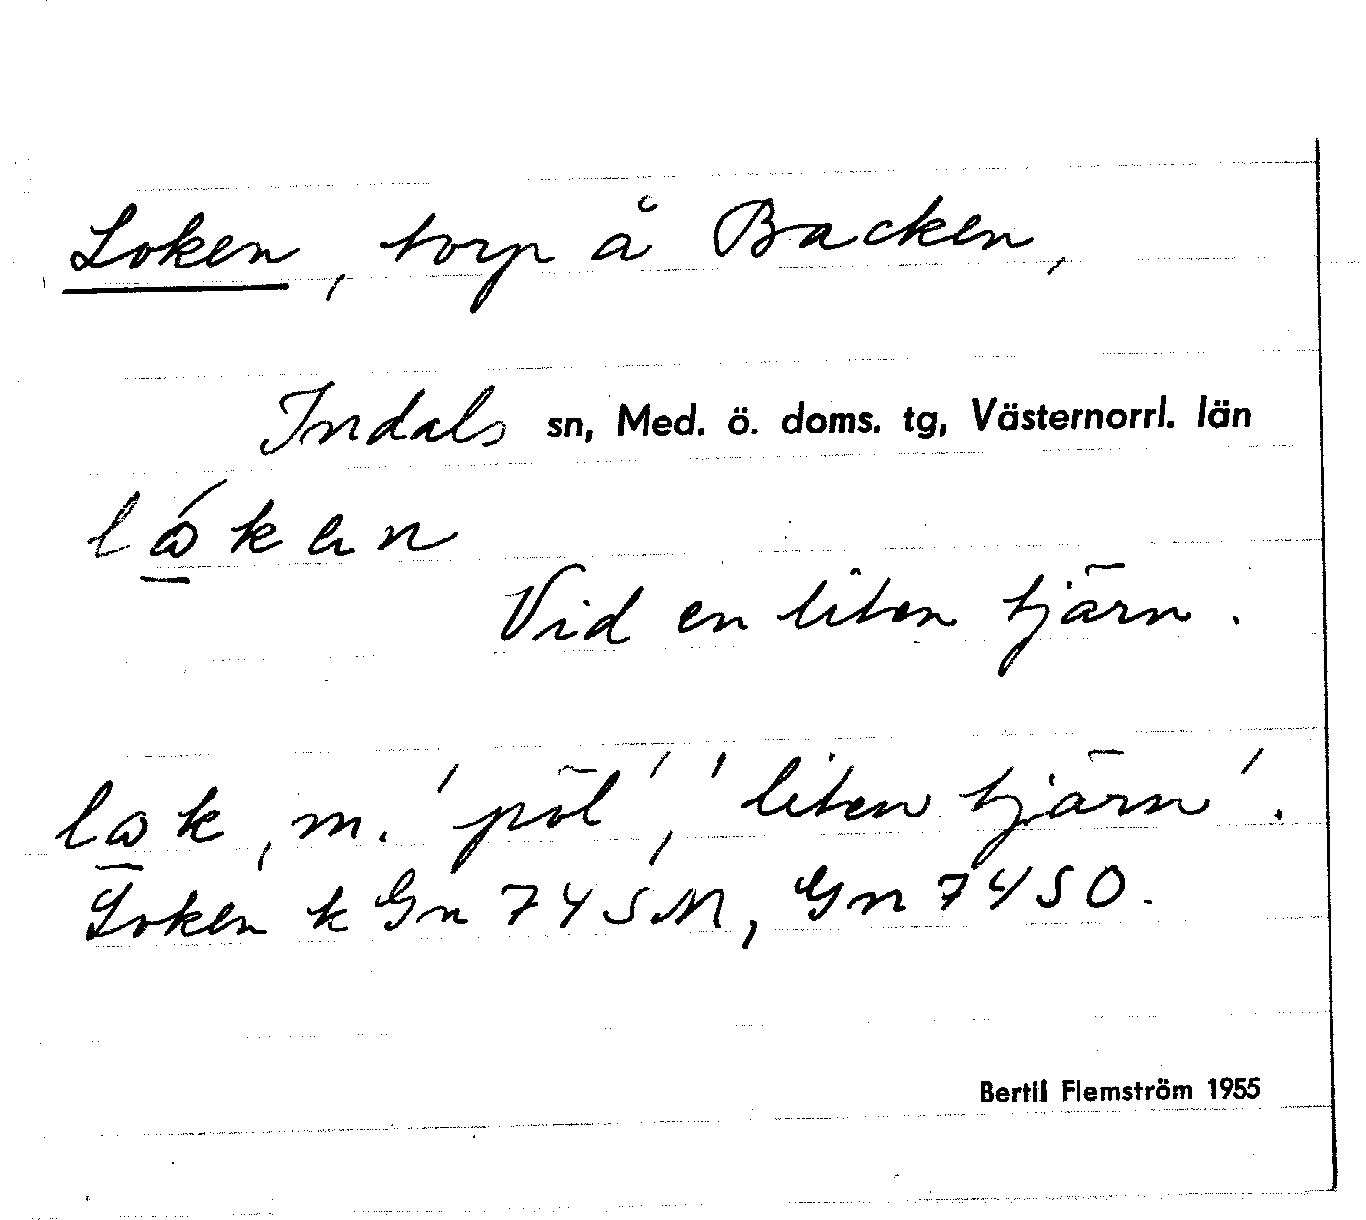 Loken, torp å Backen,
Indals sn, Med. ö. doms. tg, Västernorrl. län
Vid en liten tjärn.
m. 'pöl', 'liten tjärn'.
Loken k Gn 74 SM, Gn 74 SO.
Bertil Flemström 1955